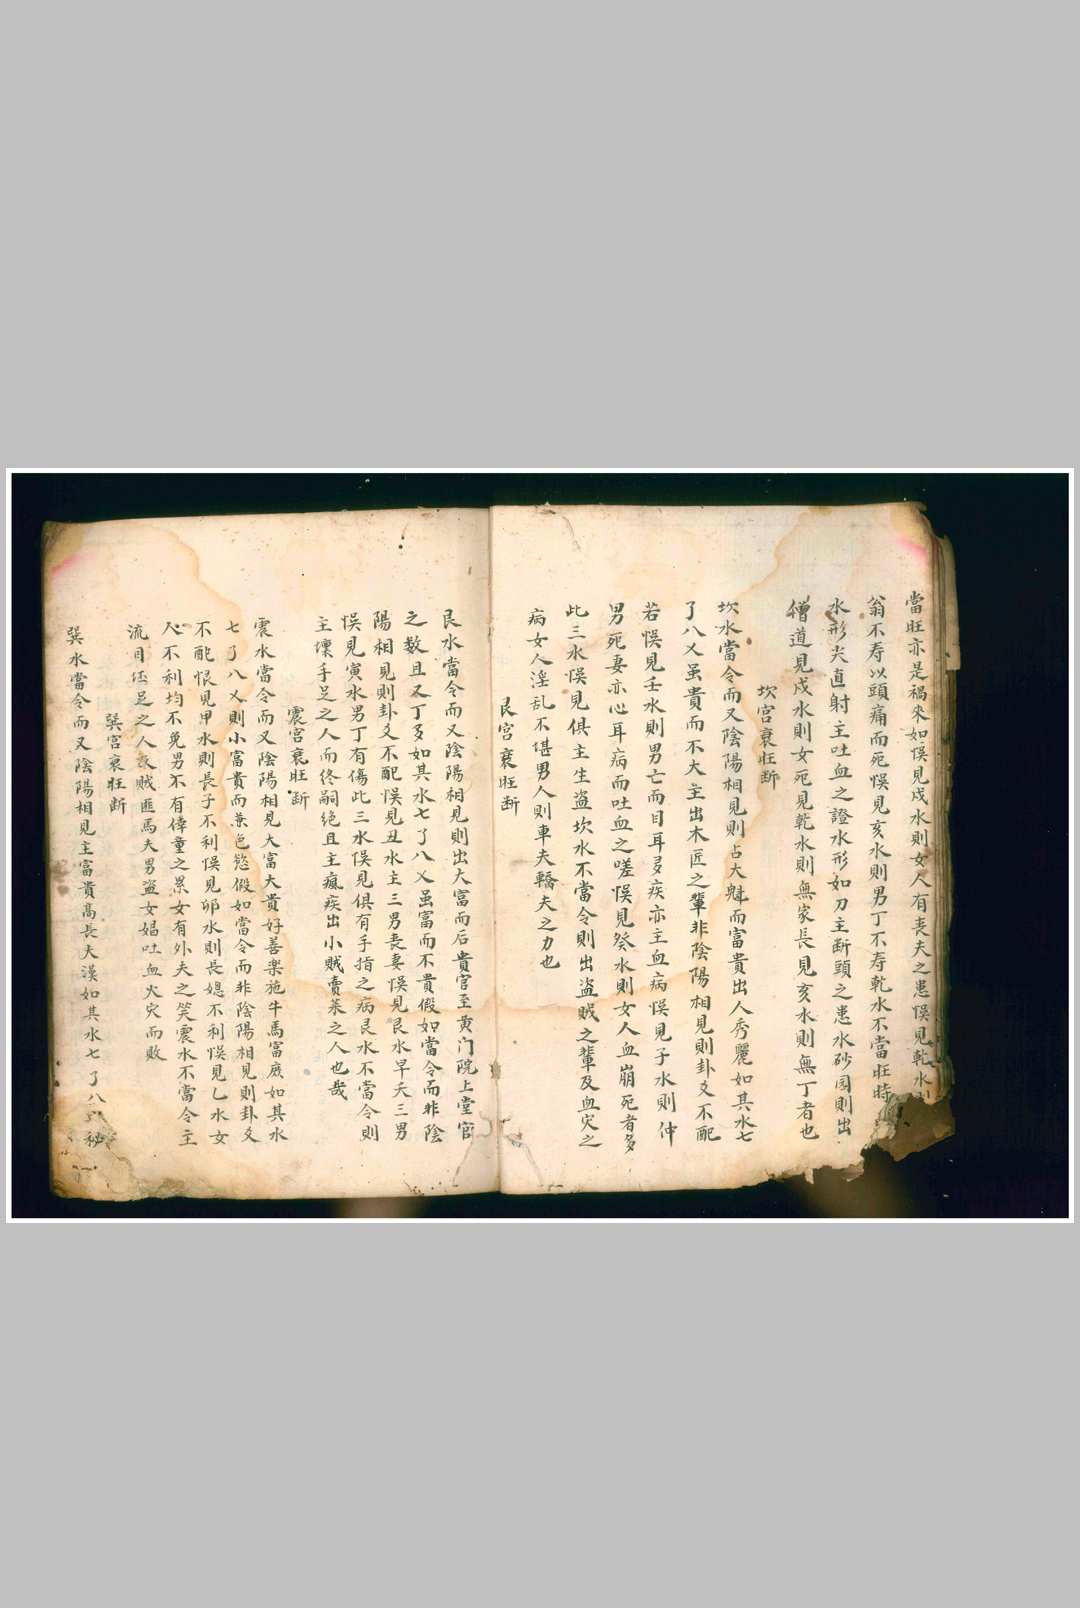 當旺亦是禍來如悮見戍水則女人有丧夫之患悮見乾水則
翁不寿以頭痛而死悮見亥水則男丁不寿乾水不當旺時
水形尖直射主吐血之證水形如刀主断頭之患水砂囯則出
僧道見戍水則女死見乾水則無家長見亥水則無丁者也
坎宫衰旺断
坎水當令而又陰陽相見則占大魁而富貴出人秀麗如其水七
了八乂虽貴而不大主出木匠之輩非陰陽相見則卦爻不配
若悮見壬水則男亡而目耳多疾亦主血病悮見子水則仲
男死妻亦心耳病而吐血之嗟悮見癸水則女人血崩死者多
此三水悮見俱主生盗坎水不當令則出盗贼之輩及血灾之
病女人淫乱不堪男人則車夫轎夫之力也
艮宫衰旺断
艮水當令而又陰陽相見則出大富而后貴官至黄门院上堂官
之数且又丁多如其水七了八乂虽富而不貴假如當令而非陰
陽相見則卦爻不配悮見丑水主三男丧妻悮見艮水早夭三男
悮見寅水男丁有傷此三水悮見俱有手指之病艮水不當令則
主壞手足之人而终嗣绝且主瘋疾出小賊賣菜之人也哉
震宫衰旺断
震水當令而又陰陽相見大富大貴好善楽施牛馬富庶如其水
七了八乂則小富貴而兼色慾假如當令而非陰陽相見則卦爻
不配悮見甲水則長子不利悮見卯水則長媳不利悮見乙水女
人不利均不免男不有倖童之累女有外夫之笑震水不當令主
流目足之人賊匪馬夫男盗女娼吐血火灾而敗
巽宫衰旺断
巽水當令而又陰陽相見主富貴髙長夫漢如其水七了八乂秘